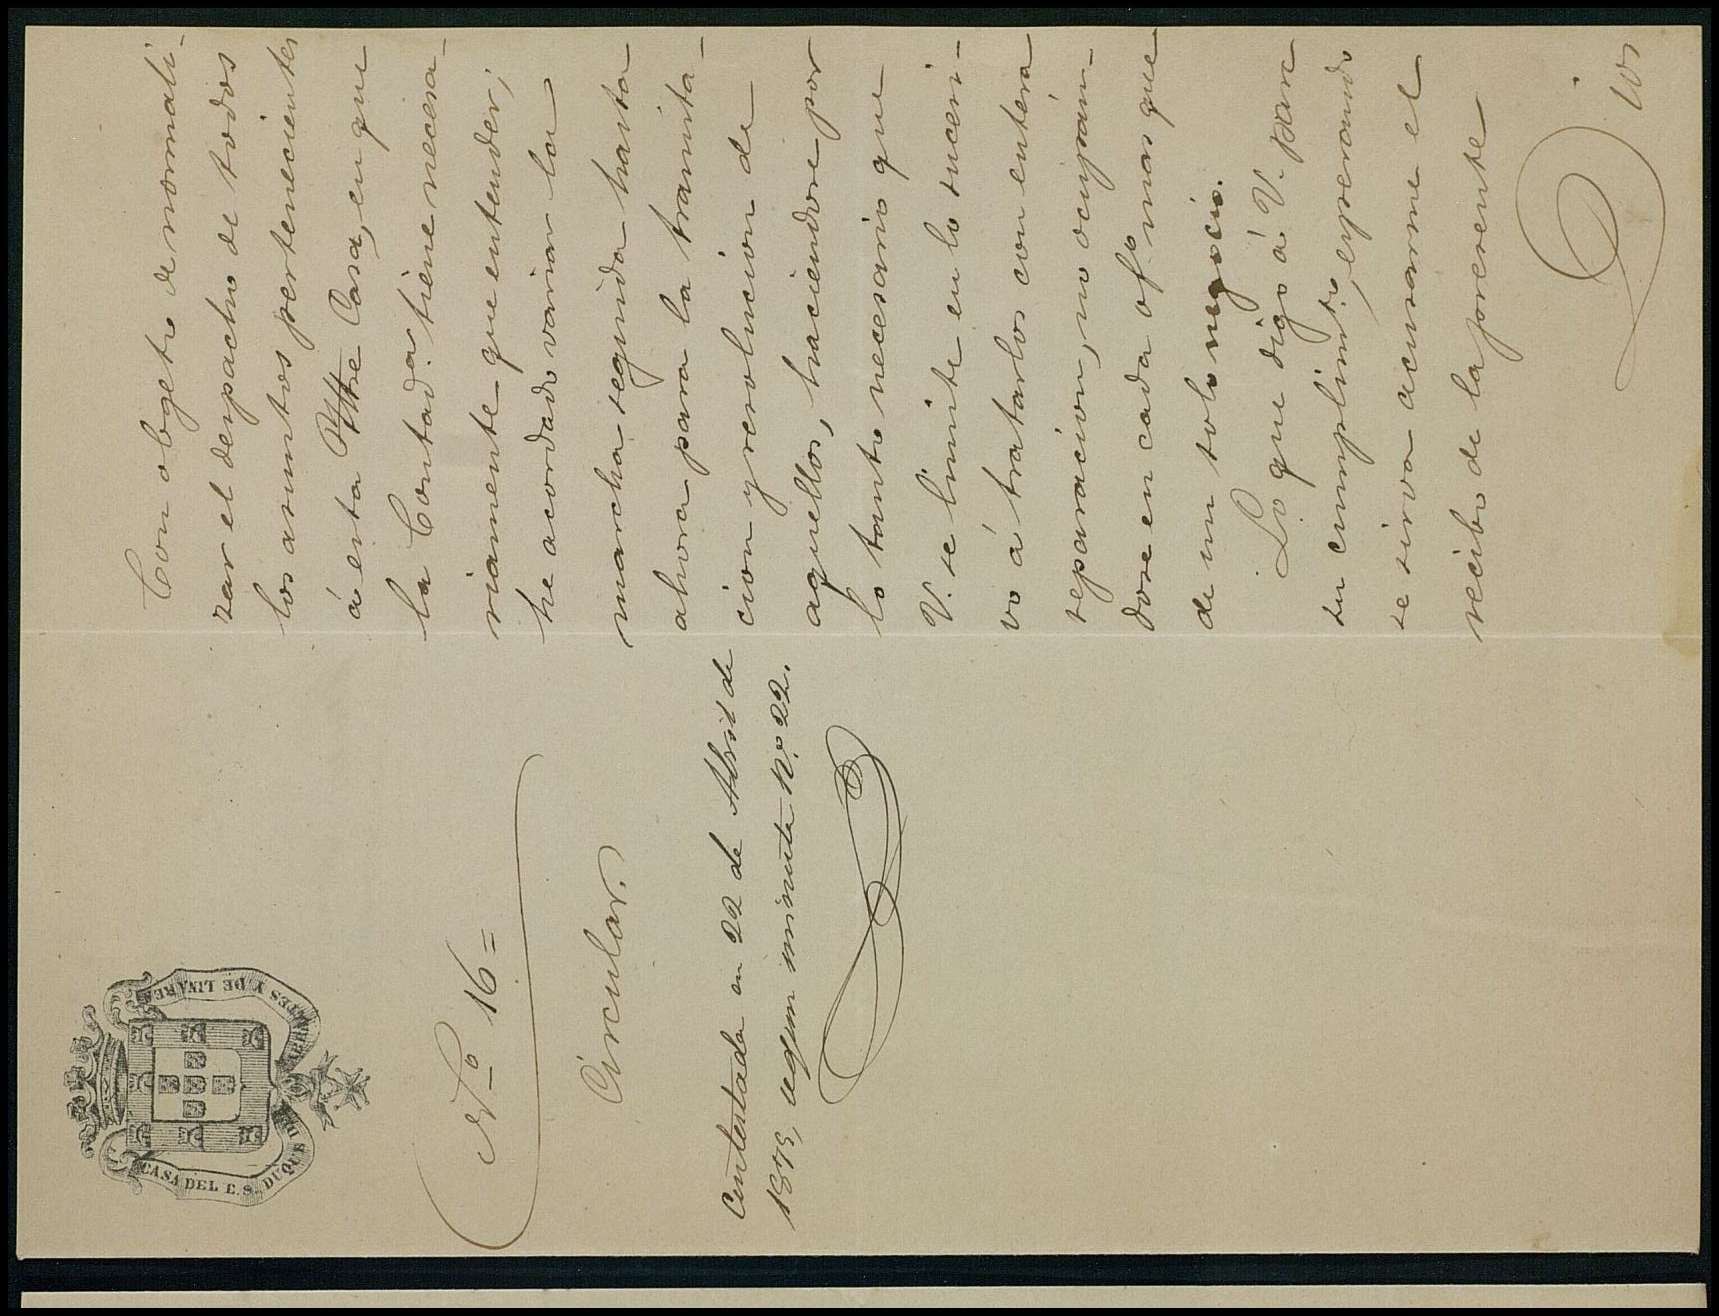 CASA DEL E.S. DUQUE DE ABRANTES Y DE LINARES
Nº 16=
Circular.
Contestada en 22 de Abril de
1879, segun minuta Nº 22.
Con obgeto de normali-
zar el despacho de todos
los asuntos pertenecientes
á esta Yltre Casa, en que
la Contadª tiene necesa-
riamente que entender,
he acordado variar la
marcha seguida hasta
ahora para la tramita-
cion y resolucion de
aquellos, haciendose por
lo tanto necesario que
V. se limite en lo sucesi-
vo á tratarlos con entera
separacion, no ocupan-
dose en cada ofº mas que
de un solo negocio.
Lo que digo á V. para
su cumplimtº, esperando
se sirva acusarme el
recibo de la presente